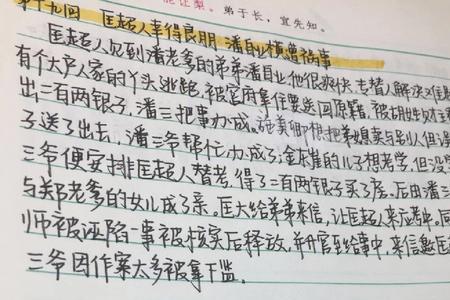 能让梨。弟于长,宜先知。
第十九回 匡超人幸得良朋 潘自业横遭祸事
匡超人见到潘老爹的弟弟潘自业他很爽快,专替人解决对
有个大户人家的丫头逃跑,被官府拿住要送回原籍,被胡财主
出二百两银子,潘三把事办成。施美卿想把弟媳卖与别人但没
子送了出去,潘三爷帮忙办成了;金东崖的儿子想考学,但没学
三爷便安排匡超人替考,得了二百两银子买了房。后由潘三
与郑老爹的女儿成了亲。匡大给弟弟来信,让匡超人来应考中。同
师被诬陷一事被核实后释放,并升官至给事中,来信邀匡
三爷因作案太多被拿下监。